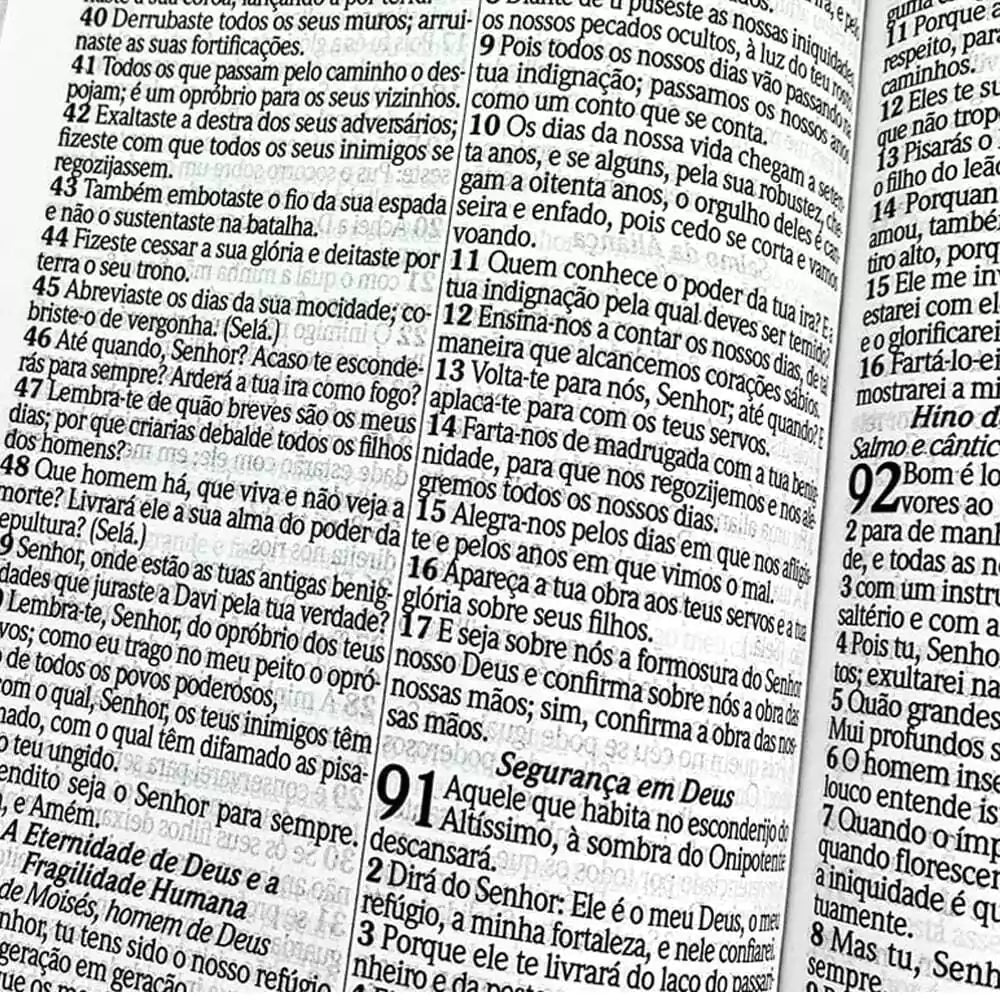 40 Derrubaste todos os seus muros; arrui-
naste as suas fortificações.
41 Todos os que passam pelo caminho o des-
pojam; é um opróbrio para os seus vizinhos.
42 Exaltaste a destra dos seus adversários;
fizeste com que todos os seus inimigos se
regozijassem.
43 Também embotaste o fio da sua espada
e não o sustentaste na batalha.
44 Fizeste cessar a sua glória e deitaste por
terra o seu trono.
45 Abreviaste os dias da sua mocidade; co-
briste-o de vergonha. (Selá.)
46 Até quando, Senhor? Acaso te esconde-
rás para sempre? Arderá a tua ira como fogo?
47 Lembra-te de quão breves são os meus
dias; por que criarias debalde todos os filhos
dos homens?
48 Que homem há, que viva e não veja a
morte? Livrará ele a sua alma do poder da
epultura? (Selá.)
9 Senhor, onde estão as tuas antigas benig-
dades que juraste a Davi pela tua verdade?
Lembra-te, Senhor, do opróbrio dos teus
vos; como eu trago no meu peito o opró-
de todos os povos poderosos,
com o qual, Senhor, os teus inimigos têm
nado, com o qual têm difamado as pisa-
o teu ungido.
endito seja o Senhor para sempre.
, e Amém.
A Eternidade de Deus e a
Fragilidade Humana
de Moisés, homem de Deus
nhor, tu tens sido o nosso refúgio
geração em geração
que os
puseste as nossas iniquidades
os nossos pecados ocultos, à luz do teu rosto
9 Pois todos os nossos dias vão passando na
tua indignação; passamos os nossos anos
como um conto que se conta.
10 Os dias da nossa vida chegam a seten-
ta anos, e se alguns, pela sua robustez, che-
gam a oitenta anos, o orgulho deles é can-
seira e enfado, pois cedo se corta e vamos
voando.
11 Quem conhece o poder da tua ira? E a
tua indignação pela qual deves ser temido?
12 Ensina-nos a contar os nossos dias, de tal
maneira que alcancemos corações sábios.
13 Volta-te para nós, Senhor; até quando? E
aplaca-te para com os teus servos.
14 Farta-nos de madrugada com a tua benig-
nidade, para que nos regozijemos e nos ale-
gremos todos os nossos dias.
15 Alegra-nos pelos dias em que nos afligis-
te e pelos anos em que vimos o mal.
16 Apareça a tua obra aos teus servos e a tua
glória sobre seus filhos.
17 E seja sobre nós a formosura do Senhor
nosso Deus e confirma sobre nós a obra das
nossas mãos; sim, confirma a obra das nos-
sas mãos.
Segurança em Deus
91 Aquele que habita no esconderijo do
Altíssimo, à sombra do Onipotente
descansará.
2 Dirá do Senhor: Ele é o meu Deus, o meu
refúgio, a minha fortaleza, e nele confiarei.
3 Porque ele te livrará do laço do passari-
nheiro e da
11 Porque a
respeito, para
caminhos.
12 Eles te su
que não trope
13 Pisarás o
o filho do leão
14 Porquan
amou, també
tiro alto, porq
15 Ele me in
estarei com el
e o glorificarei
16 Fartá-lo-ei
mostrarei a mi
Hino d
Salmo e cântic
92 Bom é lo
vores ao
2 para de manh
de, e todas as no
3 com um instru
saltério e com a
4 Pois tu, Senho
tos; exultarei na
5 Quão grandes
Mui profundos s
6 O homem inse
louco entende is
7 Quando o ímp
quando florescer
a iniquidade é qu
tuamente.
8 Mas tu, Senho
sempre.